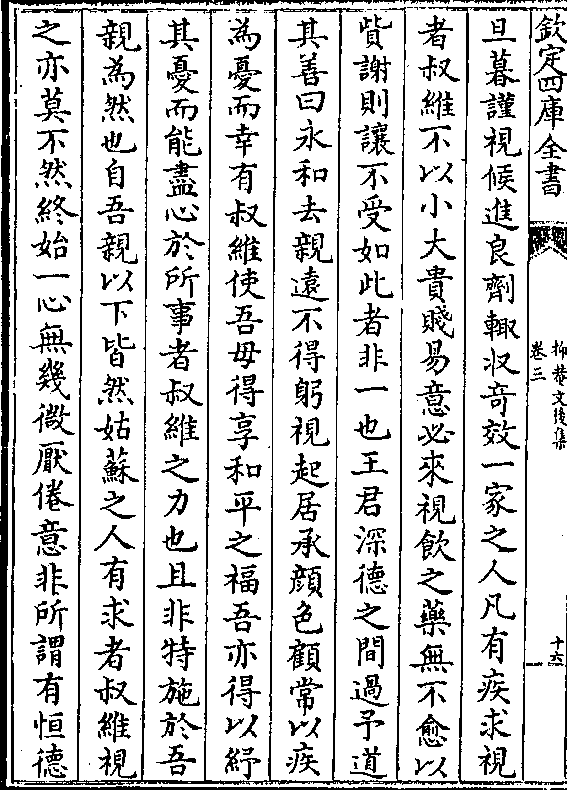 欽定四庫全書
抑菴文後集
卷三
十六
旦暮謹視候進良劑輒收竒效一家之人凡有疾求視
者叔維不以小大貴賤易意必來視飲之藥無不愈以
貲謝則讓不受如此者非一也王君深德之間過予道
其善曰永和去親遠不得躬視起居承顔色顧常以疾
為憂而幸有叔維使吾母得享和平之福吾亦得以紓
其憂而能盡心於所事者叔維之力也且非特施於吾
親為然也自吾親以下皆然姑蘇之人有求者叔維視
之亦莫不然終始一心無幾微厭倦意非所謂有恒德